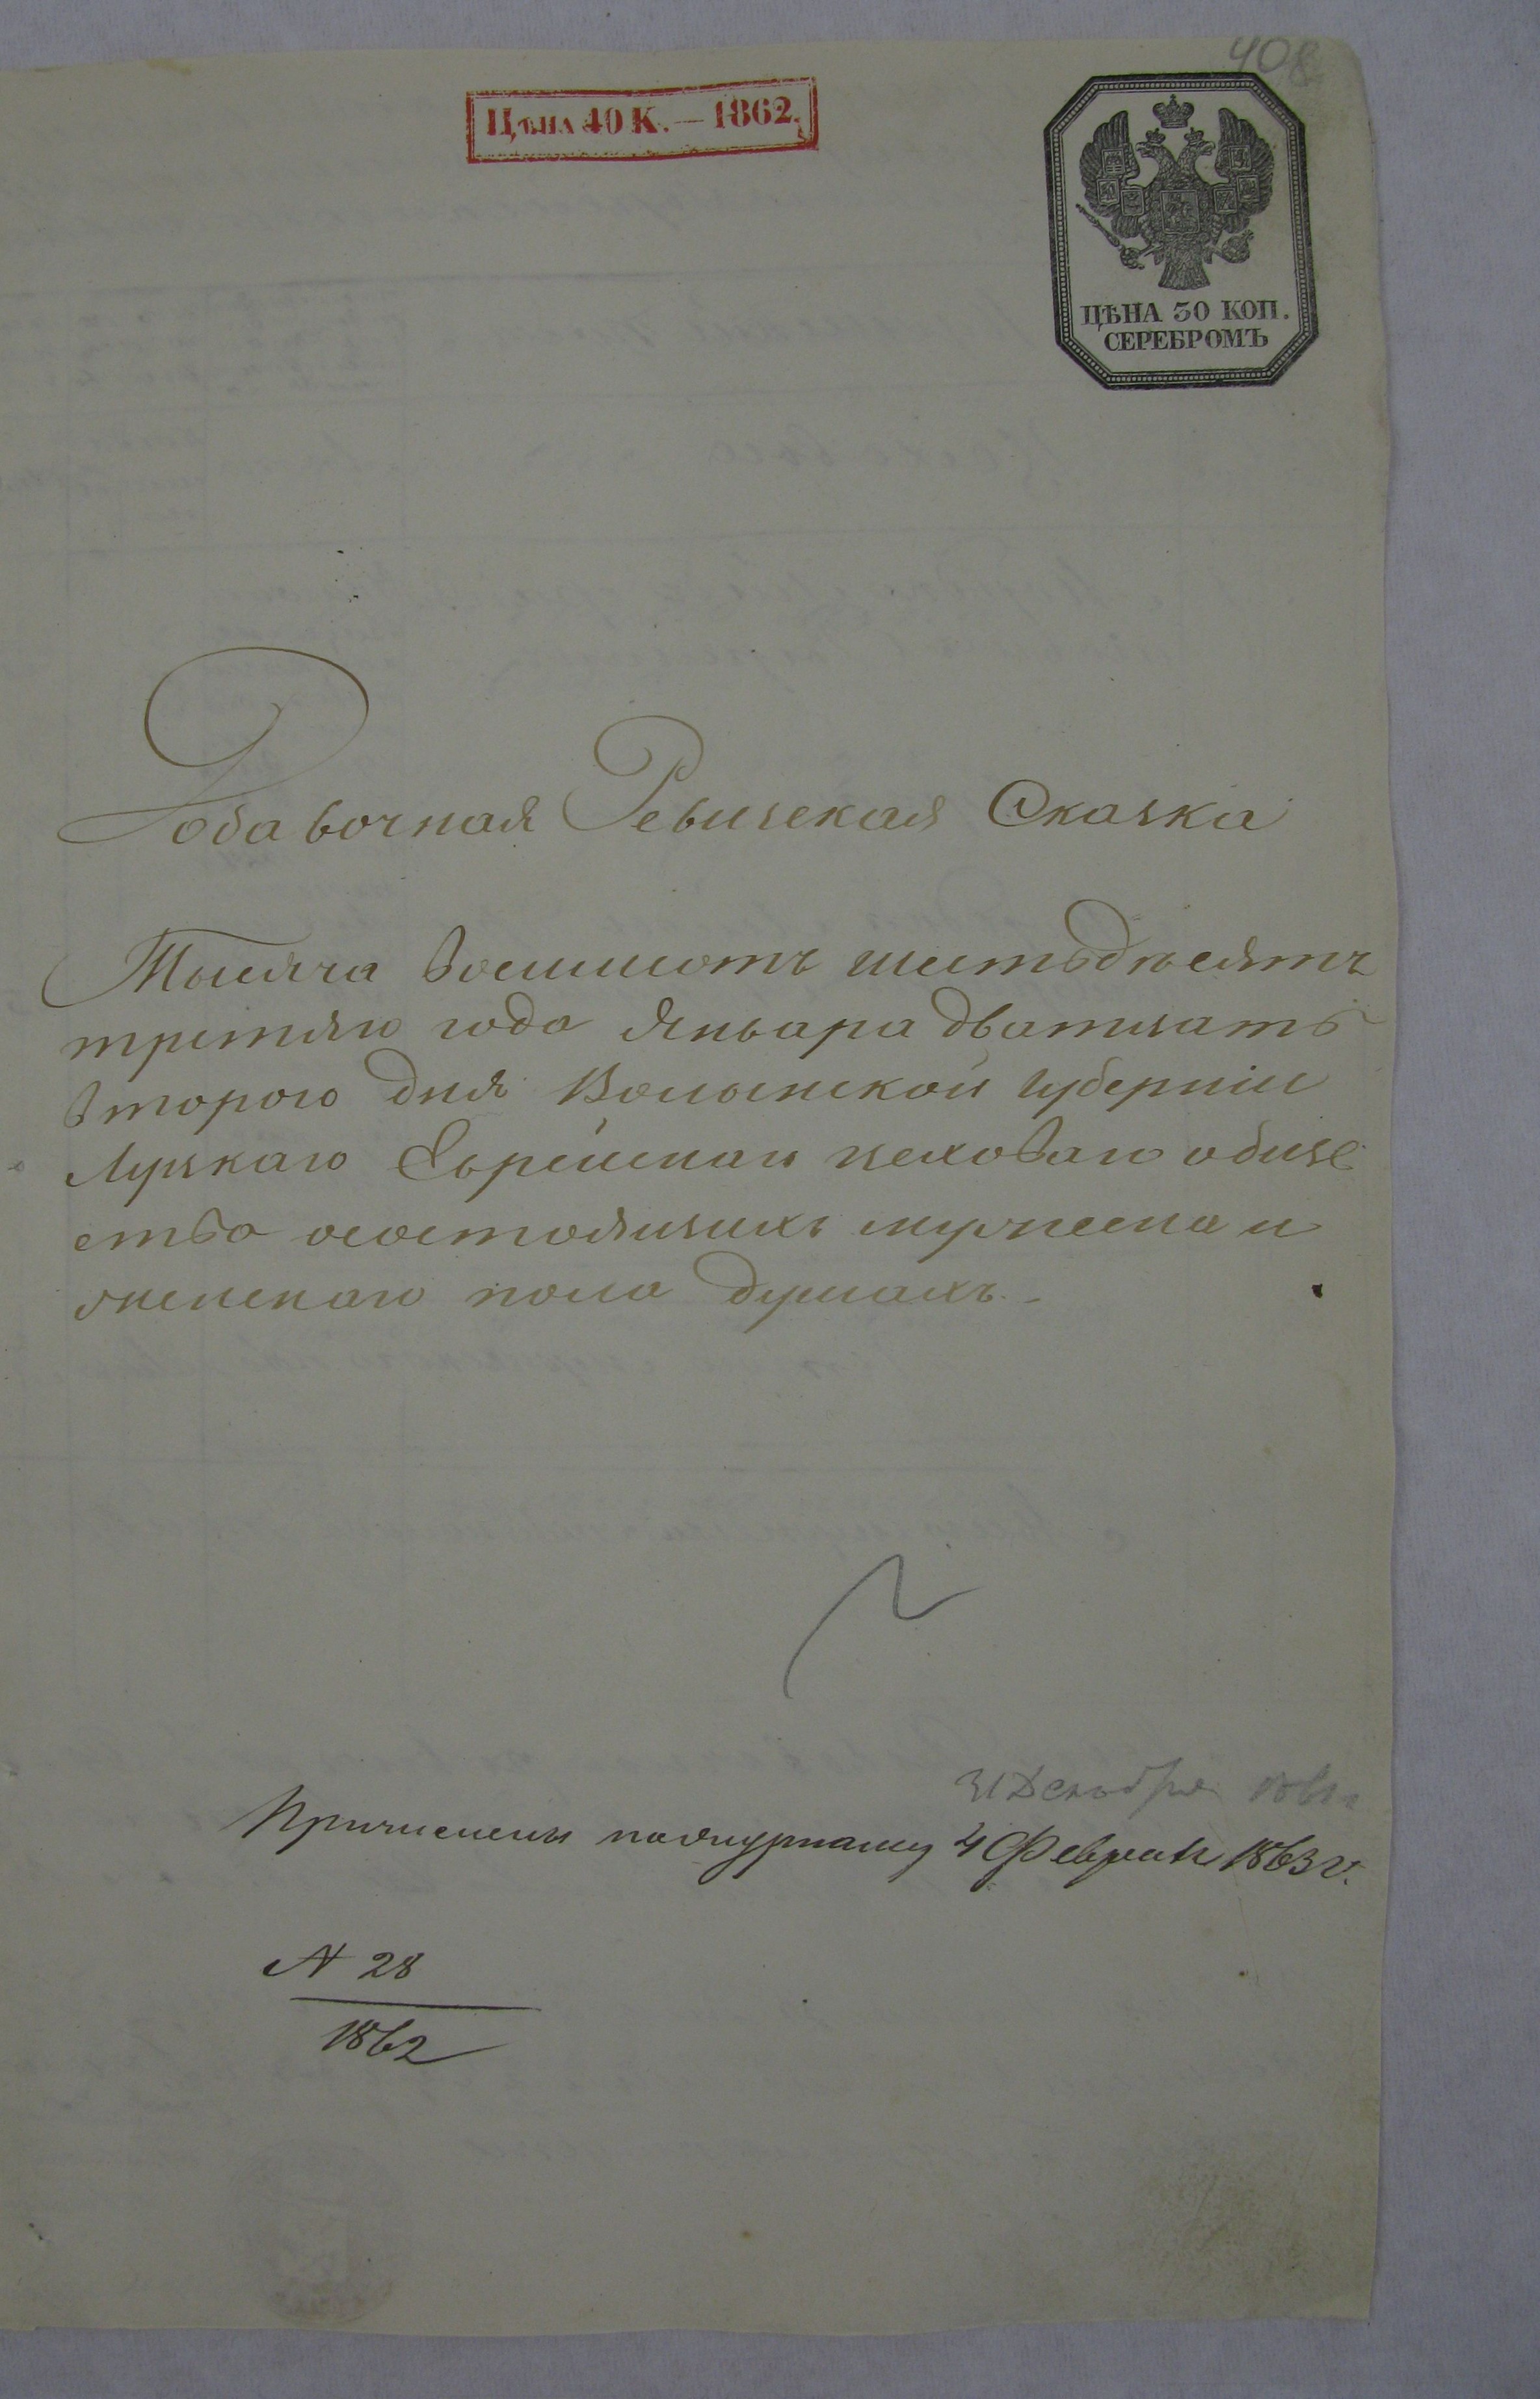 408
Цѣна 40 К. — 1862.
ЦѢНА 30 КОП.
СЕРЕБРОМЪ
Добавочная Ревизская Сказка
Тысяча восемьсотъ шестьдесятъ
третяго года Января дватцать
второго дня Волынской Губерніи
Луцкаго Еврейскаго цеховаго обще
ства осостоящихъ мужеска и
женскаго пола душахъ.
31 Декабря
Причислены пожурналу 4 Февраля 1863 г.
№ 28
1862